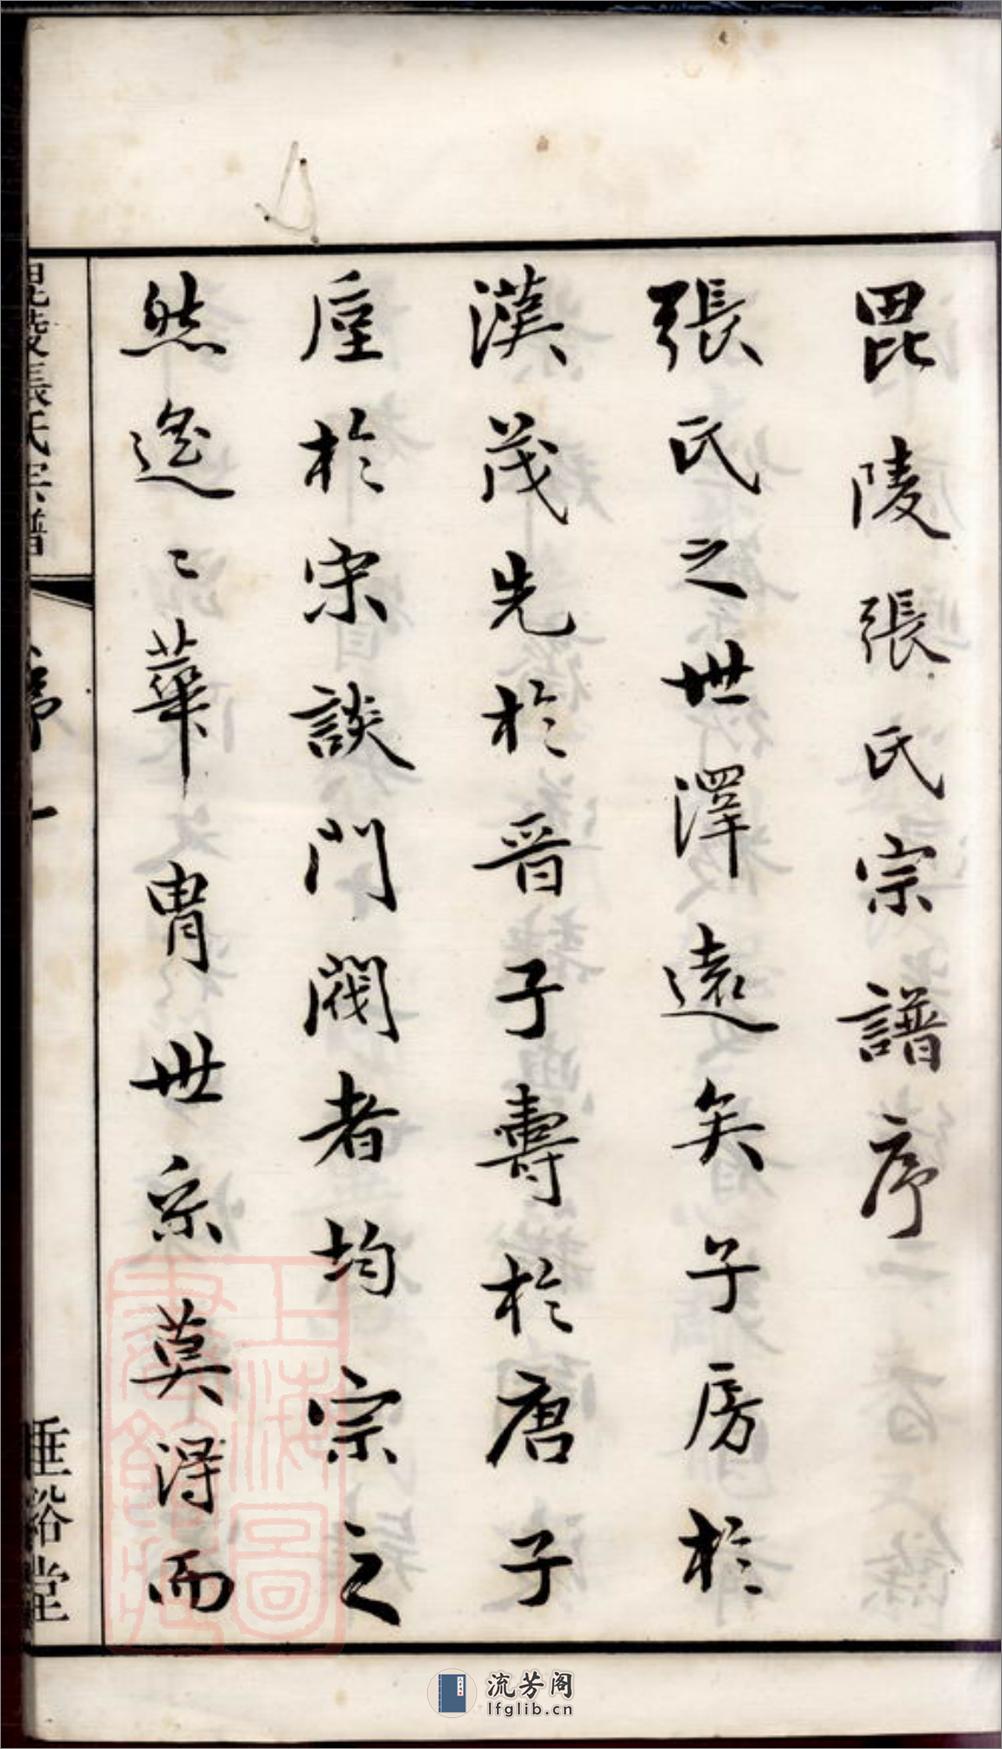 毘陵張氏宗譜序
張氏之世澤遠矣子房於
漢茂先於晉子壽於唐子
於宋談門閥者均宗之
然遙〻華胄世系莫淂而
毘陵張氏宗譜
序
一
垂裕堂
上海圖
書館藏
流芳阁
lfglib.cn